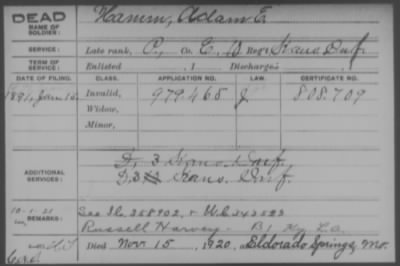 DEAD
NAME OF SOLDIER:
Hamm, Adam E.
SERVICE:
Late rank, P, Co. E, Reg't Kans Inf
TERM OF SERVICE:
Enlisted , 1 Discharged
DATE OF FILING.
CLASS.
APPLICATION NO.
LAW.
CERTIFICATE NO.
1891, Jan 15
Invalid,
979.465
J
808.709
Widow,
Minor,
ADDITIONAL SERVICES:
F, 3 Kans. Inf.
3 Kans. Inf.
10-1-21
REMARKS:
See Ilc 358902 + W.C. 343523
Russell Harvey- B1 Ky. L.A.
Died Nov. 15, 1920, at Eldorado Springs, Mo.